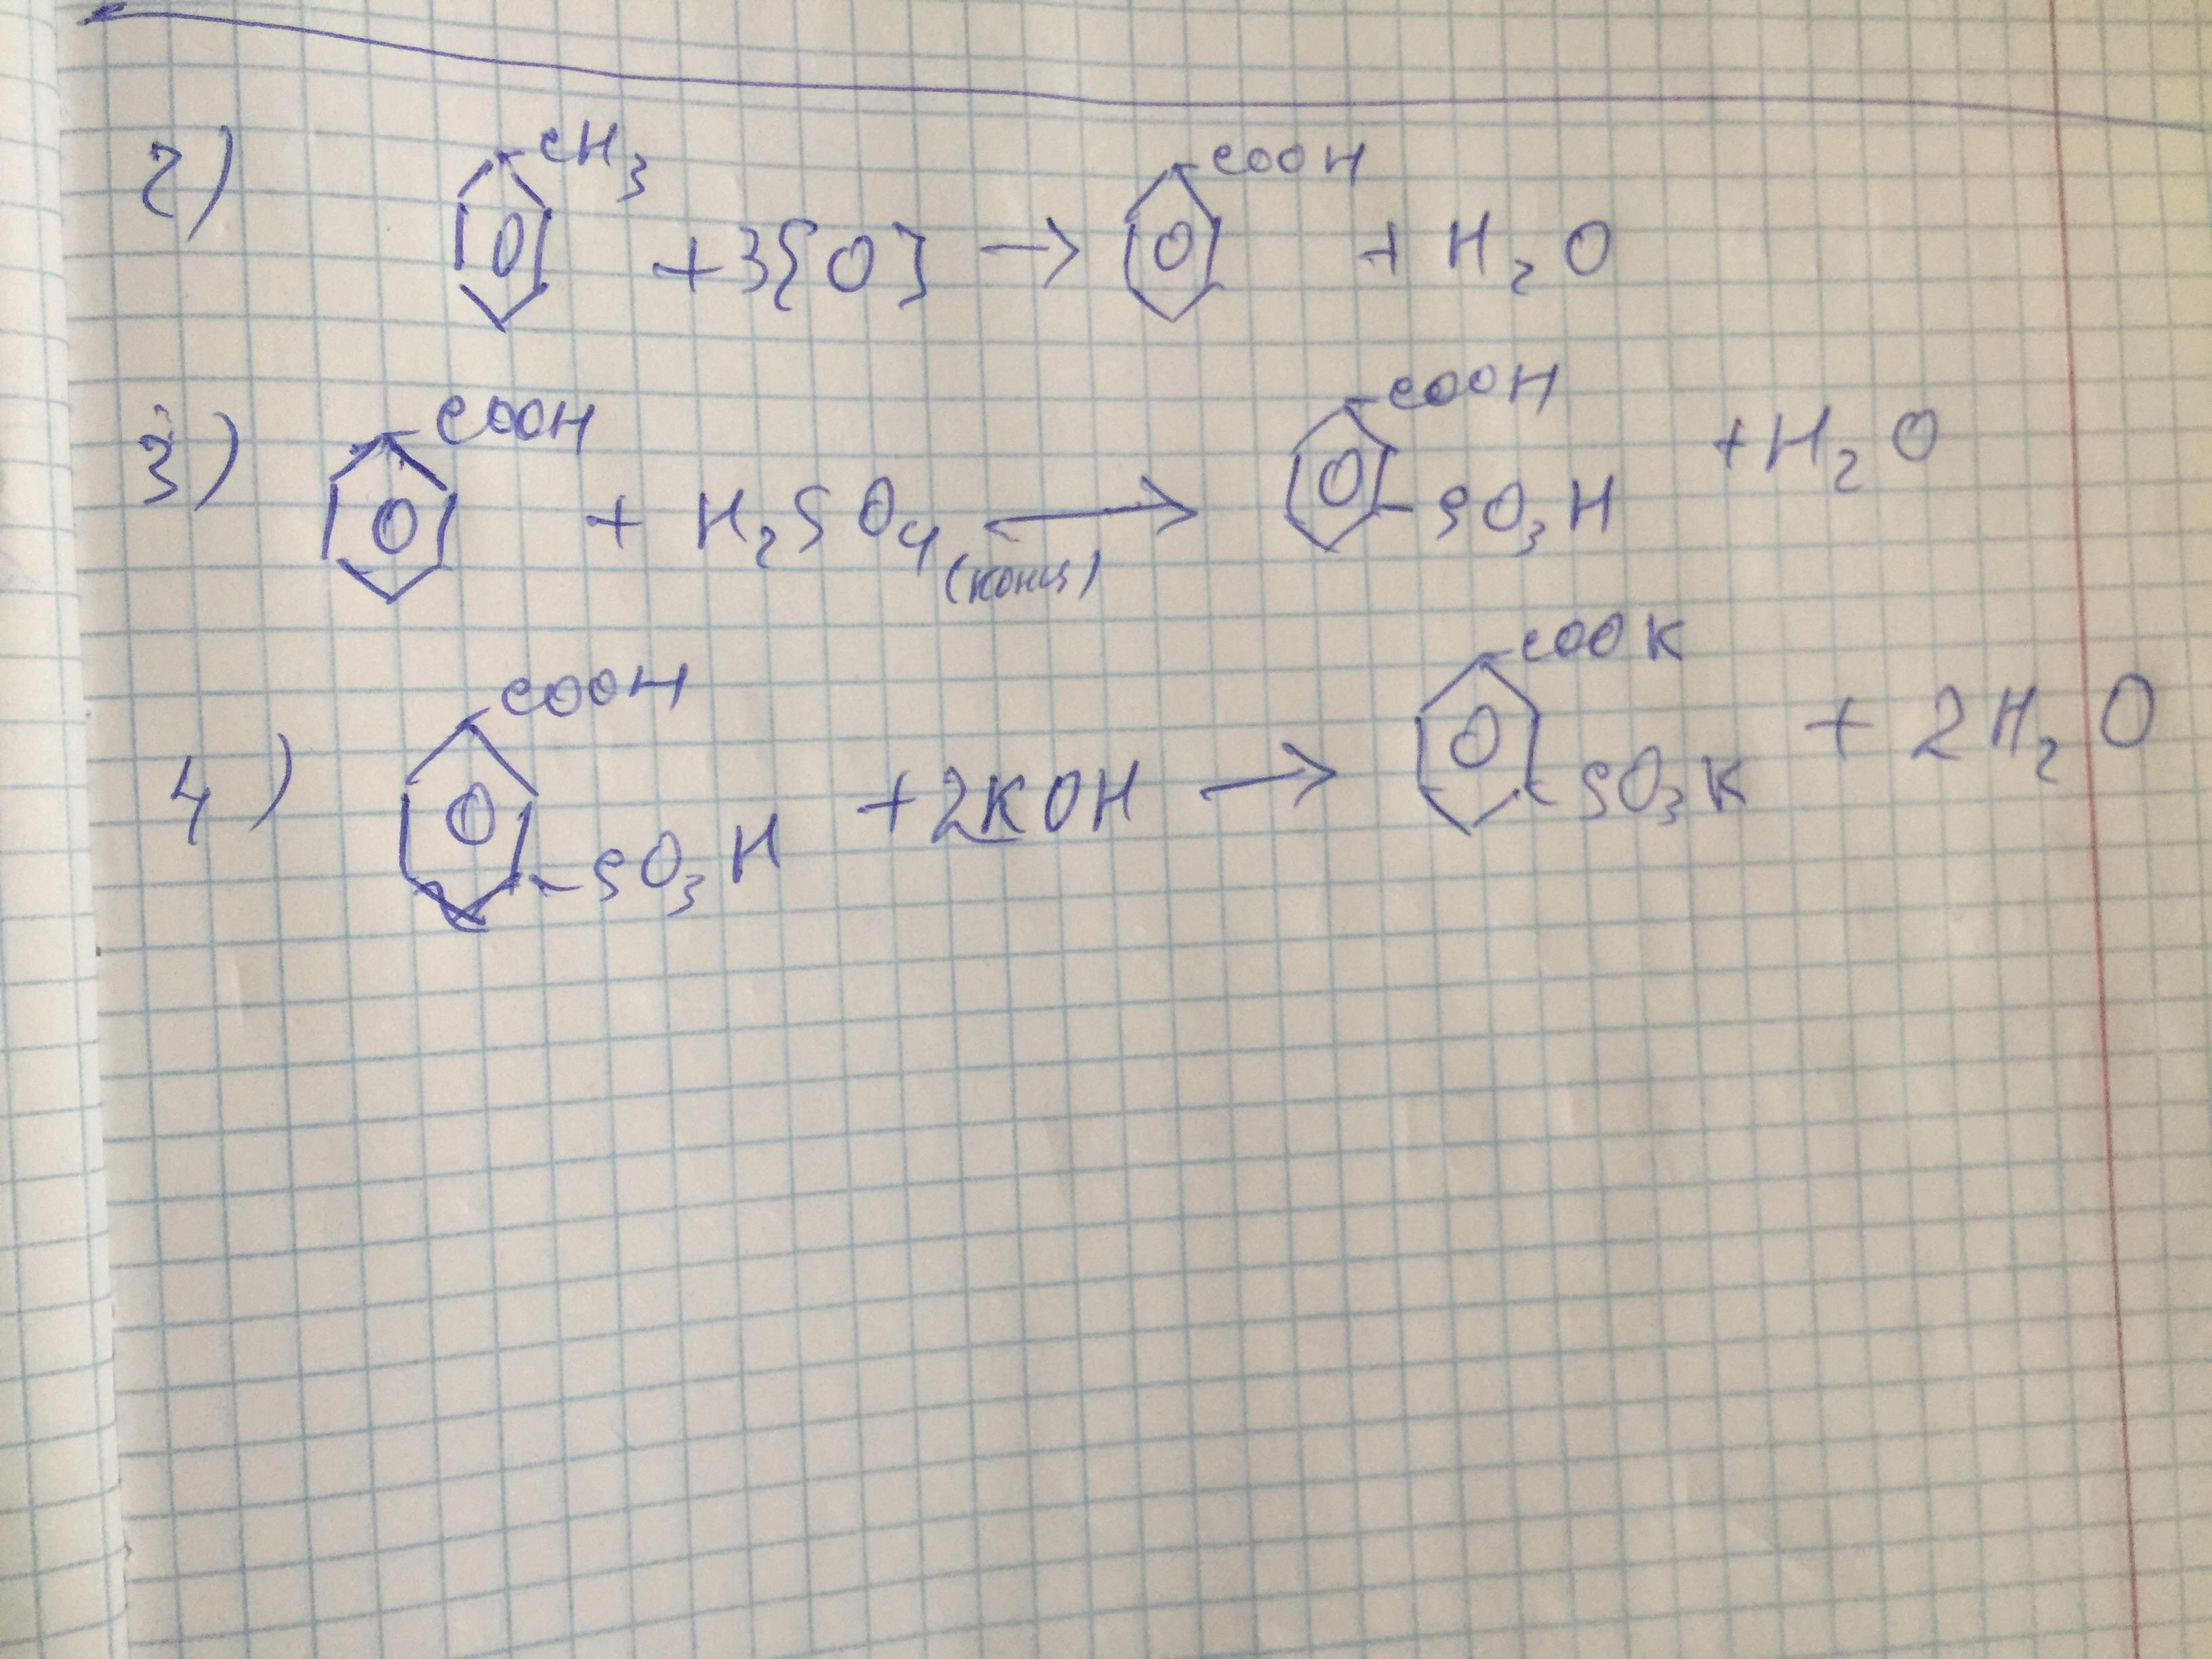 2) CH3 + 3[O] → COOH + H2O
3) COOH + H2SO4 (конц) → COOH SO3H + H2O
4) COOH SO3H + 2KOH → COOK SO3K + 2H2O